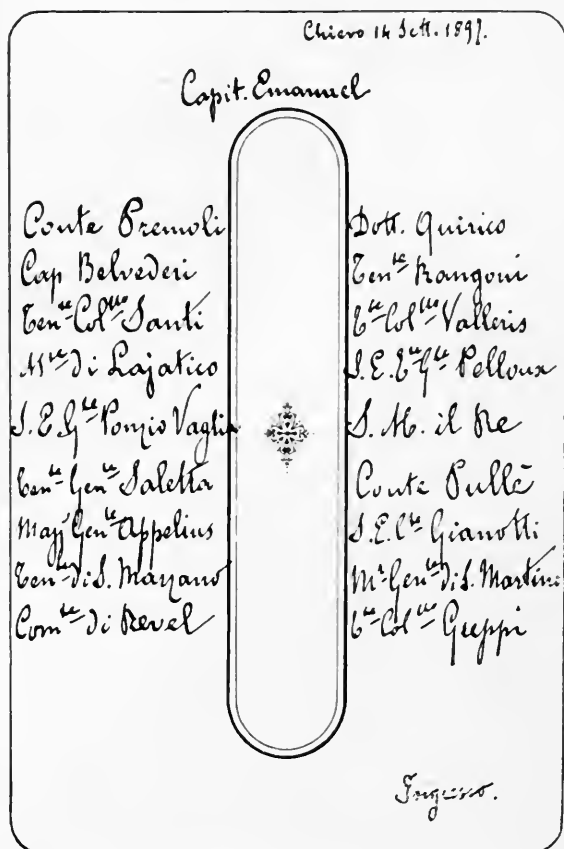 Chievo 14 Sett. 1897.
Capit. Emanuel
Conte Premoli
Cap Belvederi
Ten.te Col.llo Santi
M.se di Lajatico
S. E. G.le Ponzio Vaglia
Ten.te Gen.le Saletta
Magg.r Gen.le Appelius
Ten.te di S. Marzano
Com.te di Revel
Dott. Quirico
Ten.te Rangoni
T.te Col.llo Valleris
S. E. T.te G.le Pelloux
S. M. il Re
Conte Pullè
S. E. C.te Gianotti
M.r Gen.le di S. Martino
T.te Col.llo Greppi
Ingresso.